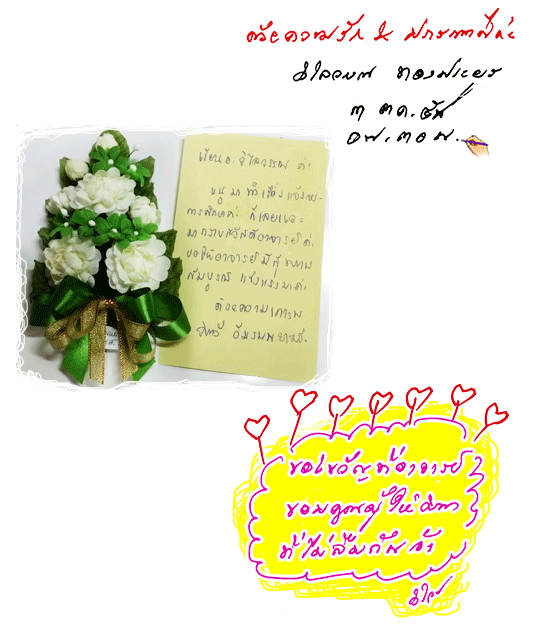 ด้วยความรัก & ปรารถนาดีค่ะ
วิไลวรรณ
๓ ตค. ๕๗
๐๗.๓๐ น.
เรียน อ. วิไลวรรณ ค่ะ
หนู มา ทำ เรื่อง แจ้งจบ-
การศึกษาค่ะ ก็เลยแวะ
มากราบสวัสดีอาจารย์ค่ะ
ขอให้อาจารย์มีสุขภาพ
สมบูรณ์ แข็งแรงนะค่ะ
ด้วยความเคารพ
ของขวัญที่อาจารย์
ขอบคุณที่ให้
ที่ไม่ลืมกันจ้า
วิไล